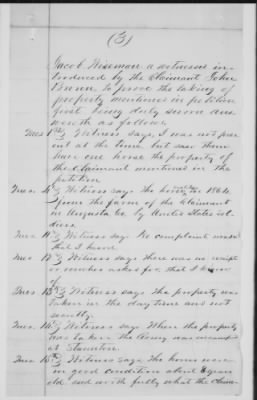 (3)
Jacob Wiseman a witness in-
troduced by the Claimant John
Brunn to prove the taking of
property mentioned in petition
first being duly sworn ans-
wereth as follows.
Ques 1st Witness says, I was not pres-
ent at the time but saw them
have one horse the property of
the Claimant mentioned in the
petition
Ques. 4th Witness says the 1864
from the farm of the Claimant
in Augusta Co by United States sol-
diers.
Ques. 11th Witness say No complaint made
that I know.
Ques 12th Witness says there was no receipt
or voucher asked for, that I know
of.
Ques. 13th Witness says the property was
taken in the day time and not
secretly.
Ques. 14th Witness says When the property
was taken the Army was encamped
at Staunton.
Ques. 16th Witness says The horse were
in good condition about 8 years
old and worth fully what the Claim-